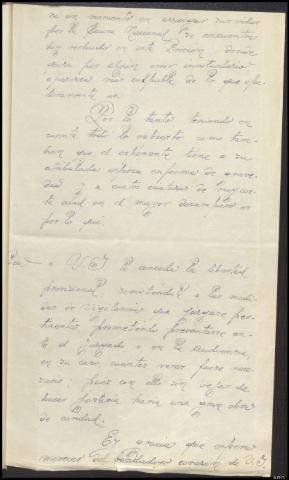 ni un momento en arriesgar sus vidas
por la Causa Nacional, se encuentra
hoy recluido en esta Prisión, donde
por algún error involuntario
aparezca más culpable de lo que efec-
tivamente es.
Por lo tanto teniendo en
cuenta todo lo expuesto como tam-
bien que el exponente tiene a su
esposa enferma de grave-
dad y a cuatro criaturas de muy cor-
ta edad en el mayor desamparo es
por lo que,
a V.I. le conceda la libertad
provisional a las medi-
das de vigilancia que juzgare per-
tinentes prometiendo presentarse an-
te el Juzgado o en la Audiencia,
en su caso, cuantas veces fuere nece-
sario; pues con ello sin dejar de
hacer justicia haria una gran obra
de caridad.
Es gracia que espera
merecer del bondadoso corazón de V.I.